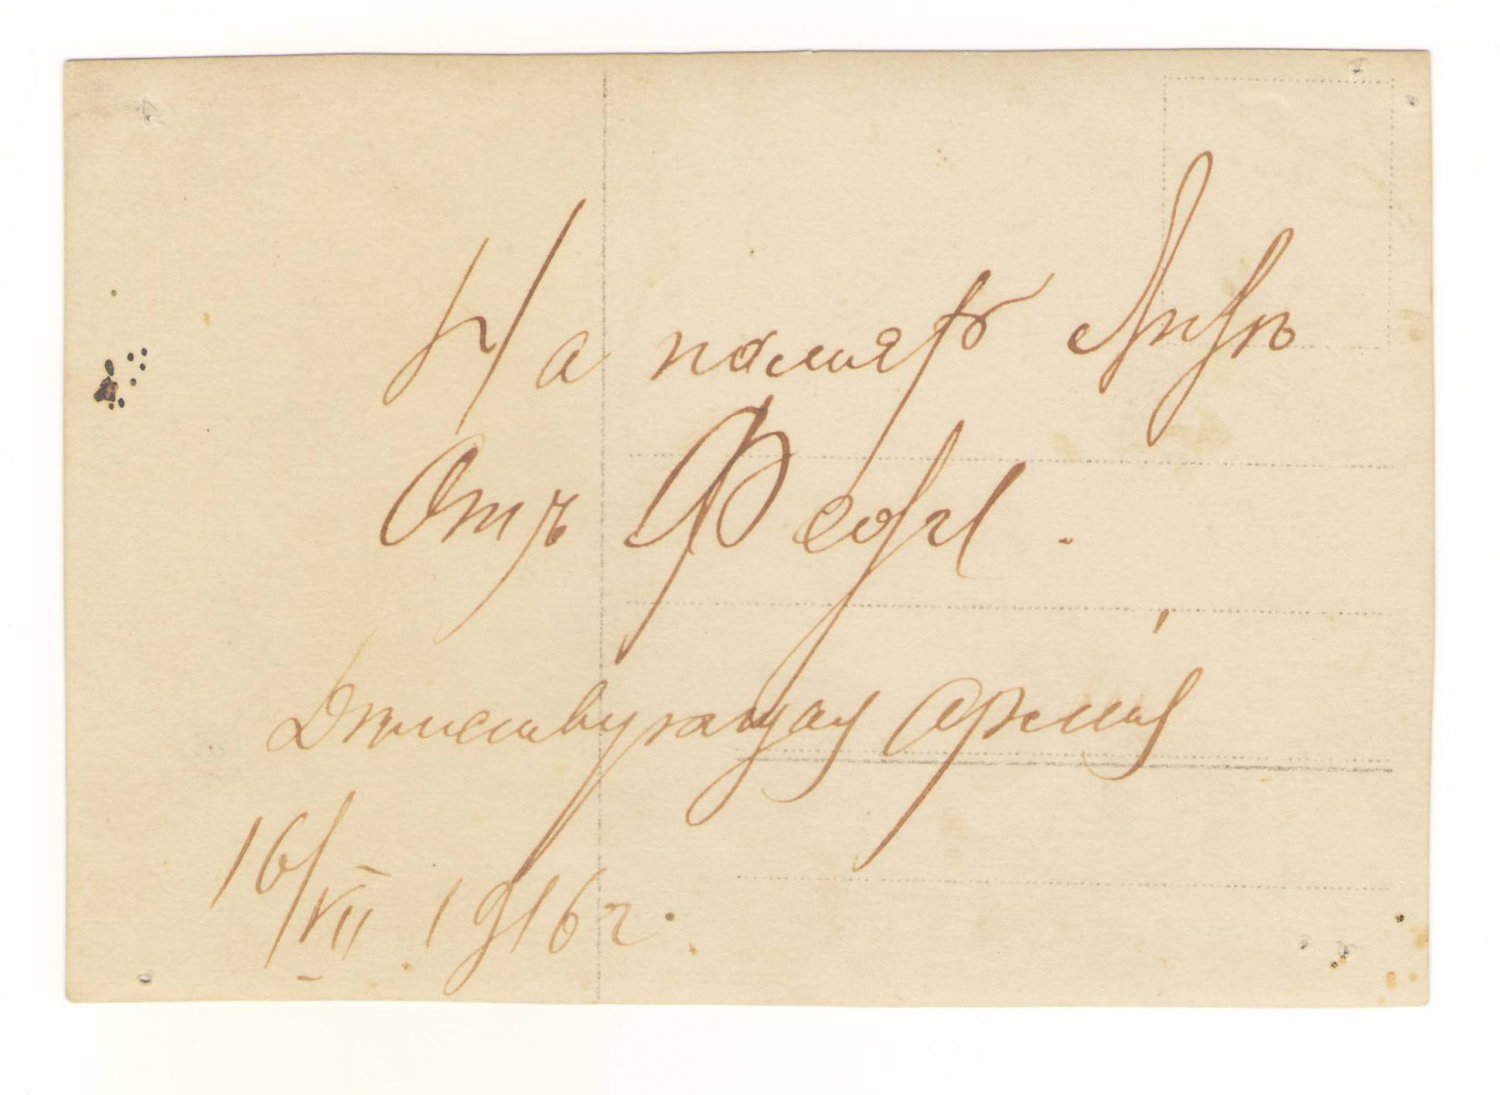 На память
Отъ Феди.
Действующая армия
16/VII 1916 г.